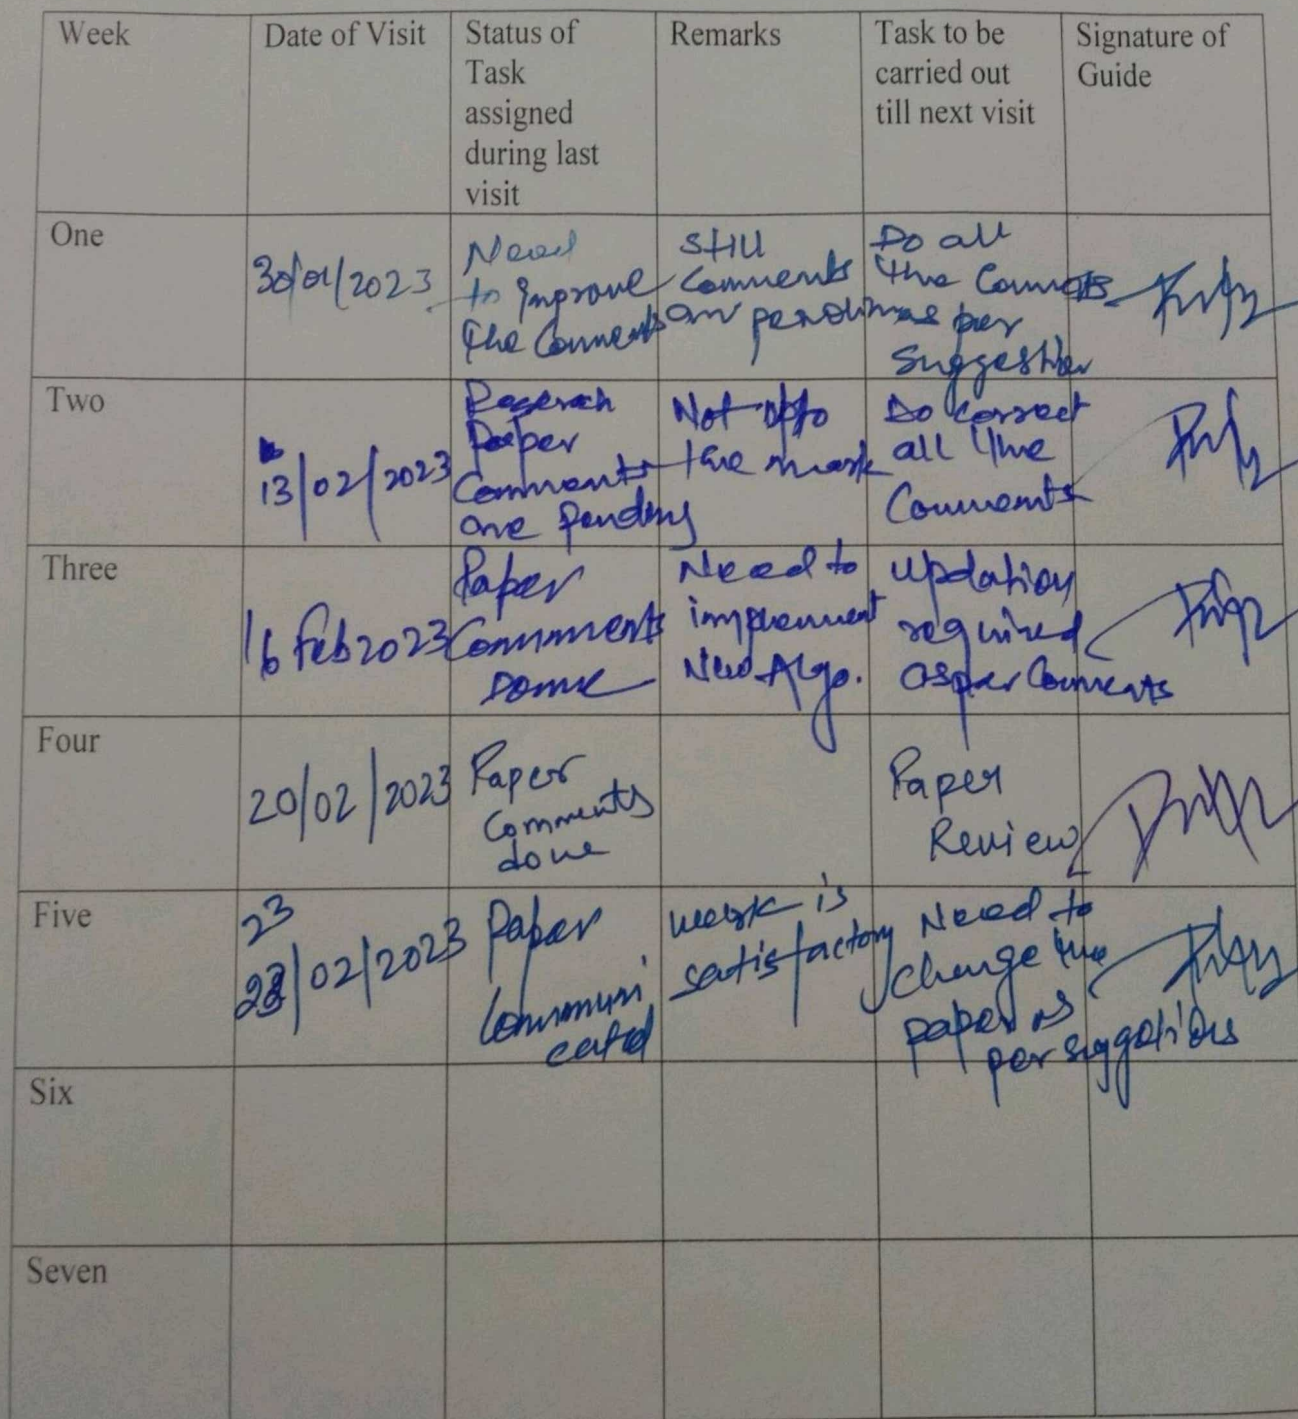 Week
Date of Visit
Status of
Task
assigned
during last
visit
Remarks
Task to be
carried out
till next visit
Signature of
Guide
One
30/01/2023
Need
to improve
the Comments
Still
Comments
are pending
Do all
the Comments
as per
Suggestion
Two
13/02/2023
Paper
Comments
are Pending
Not upto
the mark
Do correct
all the
Comments
Three
16 Feb 2023
Paper
Comments
Done
Need to
implement
New Algo.
Updation
required
as per Comments
Four
20/02/2023
Paper
Comments
done
Paper
Review
Five
23
23/02/2023
Paper
Communi
cated
work is
satisfactory
Need to
change the
paper as
per suggetions
Six
Seven